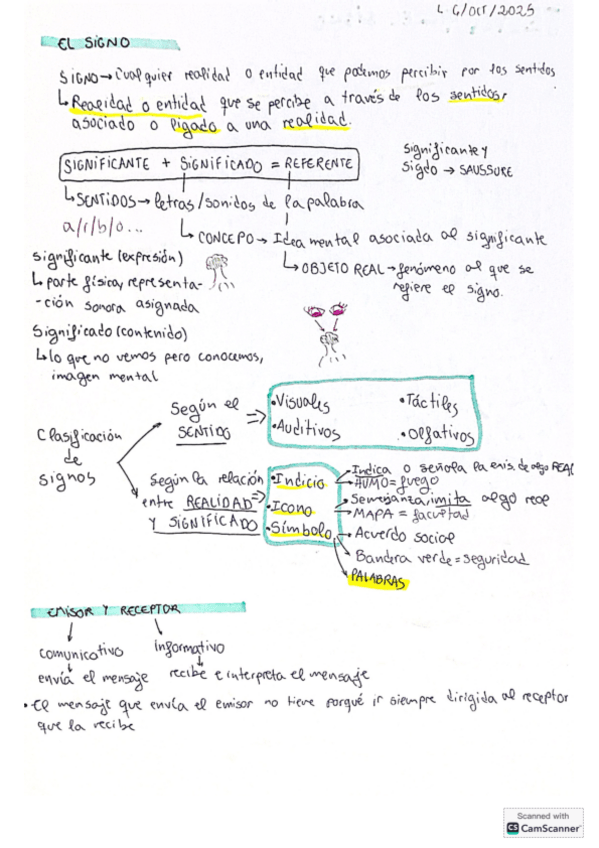 L 6/OCT/2025
EL SIGNO
SIGNO → Cualquier realidad o entidad que podemos percibir por los sentidos
↳ Realidad o entidad que se percibe a través de los sentidos,
asociado o ligado a una realidad.
SIGNIFICANTE + SIGNIFICADO = REFERENTE
Significante y
Sigdo → SAUSSURE
↳ SENTIDOS → letras/sonidos de la palabra
a/r/b/o...
↳ CONCEPO → Idea mental asociada al significante
↳ OBJETO REAL → fenómeno al que se
refiere el signo.
significante (expresión)
↳ parte física, representa-
-ción sonora asignada
Significado (contenido)
↳ lo que no vemos pero conocemos,
imagen mental
Clasificación
de
signos
Según el
SENTIDO ⇒
• Visuales
• Auditivos
• Táctiles
• Olfativos
Según la relación
entre REALIDAD ⇒
Y SIGNIFICADO
• Indicio
• Icono
• Símbolo
Indica o señala la exis. de algo REAL
HUMO = fuego
Semejanza, imita algo real
MAPA = facultad
Acuerdo social
Bandera verde = seguridad
PALABRAS
EMISOR Y RECEPTOR
comunicativo
envía el mensaje
informativo
recibe e interpreta el mensaje
• El mensaje que envía el emisor no tiene porqué ir siempre dirigida al receptor
que la recibe
Scanned with
CS CamScanner